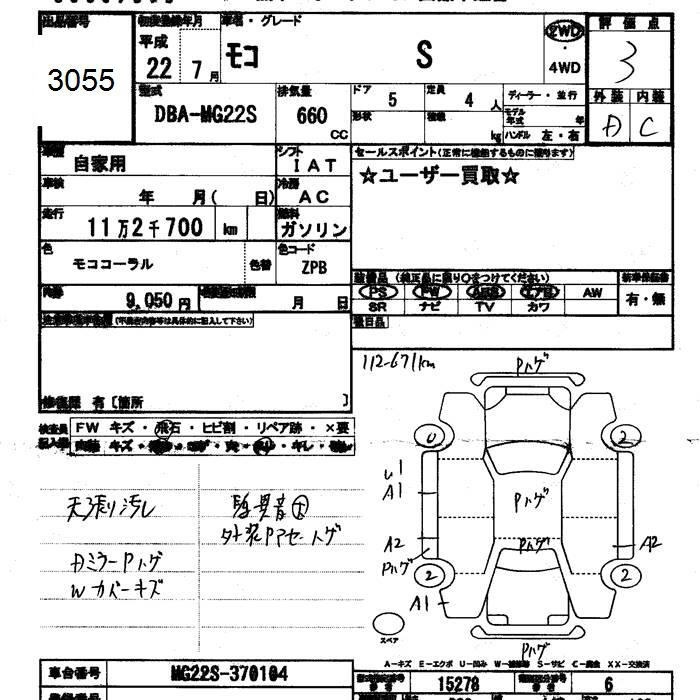 出品番号
3055
初度登録年月
平成
22 7月
車名・グレード
モコ S
2WD
4WD
評価点
3
外装 内装
D C
型式
DBA-MG22S
排気量
660
CC
ドア
5
定員
4人
形状
積載
kg
ディーラー・並行
モデル年式 年
ハンドル 左・右
車歴
自家用
シフト
IAT
車検
年 月( 日)
冷房
AC
走行
11万2千700 km
燃料
ガソリン
色
モココーラル
色替
色コード
ZPB
9,050円
月 日
セールスポイント(正常に機能するものに限ります)
☆ユーザー買取☆
装備品 (純正品に限り○をつけてください)
PS PW エアB AW
SR ナビ TV カワ
新車保証書
有・無
(不具合内容等は具体的に記入して下さい)
修復歴 有〔箇所 〕
検査員記入欄
FW キズ・飛石・ヒビ割・リペア跡・×要
112-671km
Pハゲ
U
2
U1
A1
Pハゲ
A2
A2
Pハゲ
Pハゲ
2
2
A1
スペア
Pハゲ
天張り汚レ
異音大
外装PPセートゲ
DミラーPハゲ
Wカバーキズ
A-キズ E-エクボ U-凹み W-補修跡 S-サビ C-腐食 XX-交換済
車台番号
MG22S-370104
15278
6